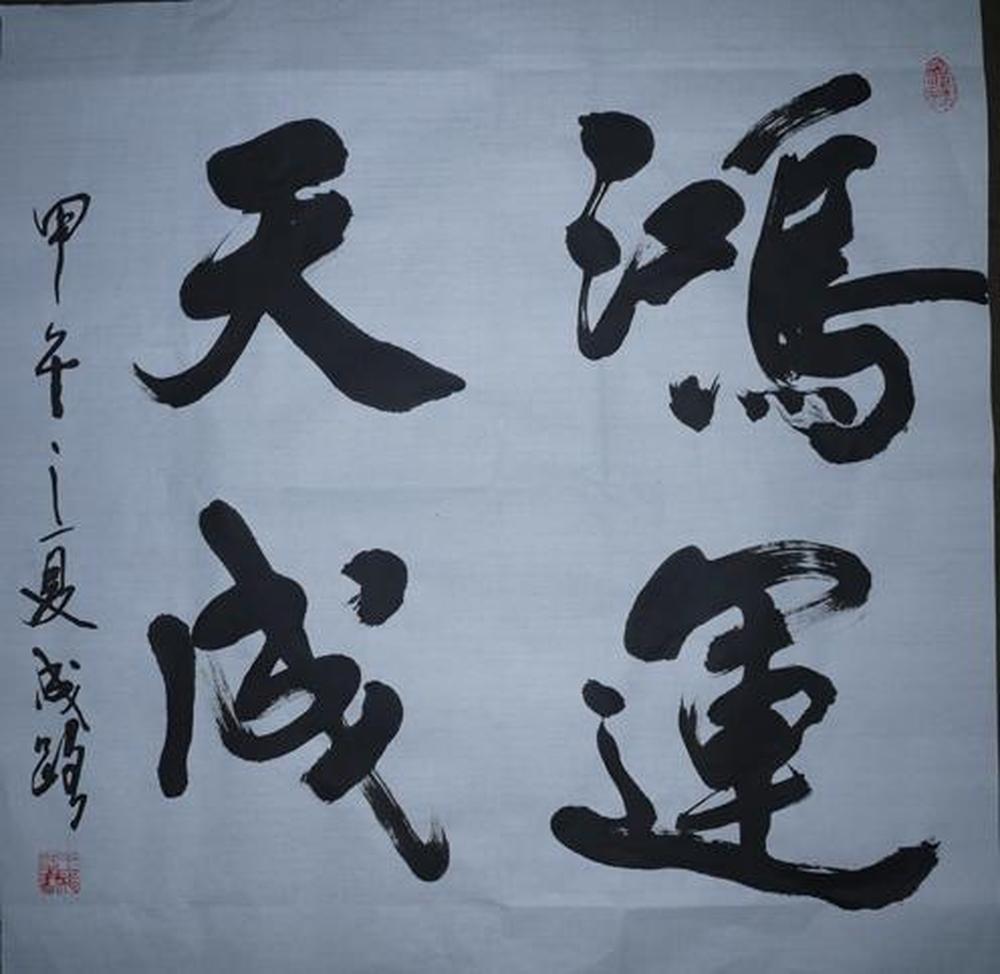 鴻運
天成
甲午之夏成路